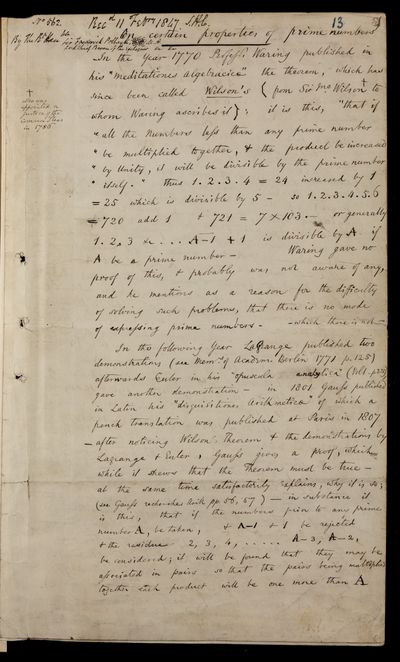 No 662. Recd 11 Feby 1847 S.H.C. 13
On certain properties of prime numbers
By the Rt Honble Sir Frederick Pollock
Lord Chief Baron of the Exchequer
In the Year 1770 Profr Waring published in
his "Meditationes Algebraicæ" the theorem, which has
since been called Wilson's (from Sir Jno Wilson † to
whom Waring ascribes it); it is this, "that if
"all the numbers less than any prime number
"be multiplied together, & the product be increased
"by Unity, it will be divisible by the prime number
"itself." Thus 1.2.3.4 = 24 increased by 1
= 25 which is divisible by 5 - so 1.2.3.4.5.6
= 720 add 1 & 721 = 7 × 103. - or generally
1.2.3 &c .... A-1 + 1 is divisible by A if
A be a prime number - Waring gave no
proof of this, & probably was not aware of any,
and he mentions as a reason for the difficulty
of solving such problems, that there is no mode
of expressing prime numbers. - which there is not -
† He was
appointed a
Justice of the
Common Pleas
in 1786
In the following Year Lagrange published two
demonstrations (see Mem. of Academ. Berlin 1771 p. 125)
afterwards Euler in his "opuscula analytica" (Vol 1 p.
gave another demonstration - in 1801 Gauss published
in Latin his "disquisitiones Arithmeticæ" of which a
french translation was published at Paris in 1807
- after noticing Wilson's Theorem & the demonstrations by
Lagrange & Euler, Gauss gives a proof, which
while it shews that the Theorem must be true -
at the same time satisfactorily explains, why it is so;
(see Gauss recherches Arith pp. 56, 57) - in substance it
is this, that if the numbers prior to any prime
number A, be taken, & A-1 & 1 be rejected
& the residue 2, 3, 4, ..... A-3, A-2,
be considered; it will be found that they may be
associated in pairs so that the pairs being multiplied
together each product will be one more than A